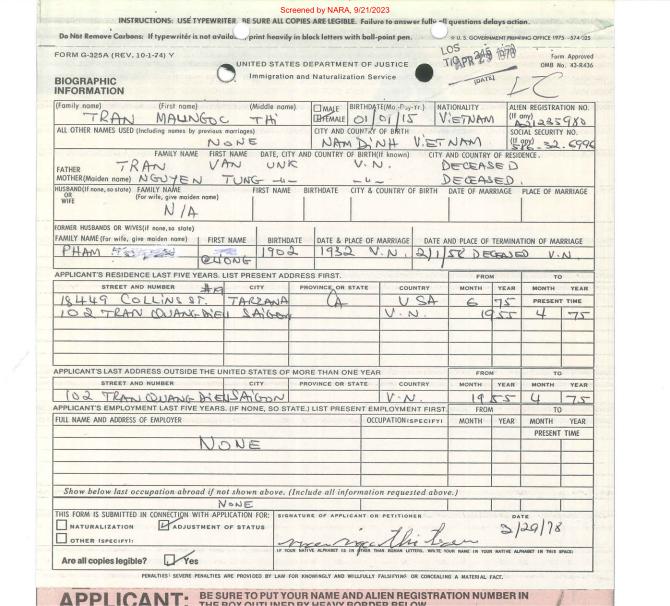 Screened by NARA, 9/21/2023
INSTRUCTIONS: USE TYPEWRITER. BE SURE ALL COPIES ARE LEGIBLE. Failure to answer fully all questions delays action.
Do Not Remove Carbons: If typewriter is not available, print heavily in block letters with ball-point pen.
☆ U.S. GOVERNMENT PRINTING OFFICE 1975
FORM G-325A (REV. 10-1-74) Y
UNITED STATES DEPARTMENT OF JUSTICE
Immigration and Naturalization Service
LOS
APR 25 1978
(DATE)
Form Approved
OMB No. 43-R436
BIOGRAPHIC
INFORMATION
(Family name) (First name) (Middle name) MALE FEMALE BIRTHDATE (Mo.-Day-Yr.) NATIONALITY ALIEN REGISTRATION NO. (If any)
TRAN MAUNGOC THI 01/01/15 VIETNAM
ALL OTHER NAMES USED (Including names by previous marriages) CITY AND COUNTRY OF BIRTH SOCIAL SECURITY NO. (If any)
NONE NAM DINH VIETNAM
FAMILY NAME FIRST NAME DATE, CITY AND COUNTRY OF BIRTH (If known) CITY AND COUNTRY OF RESIDENCE.
FATHER TRAN VAN UNK V.N. DECEASED
MOTHER (Maiden name) NGUYEN TUNG -"- -"- DECEASED.
HUSBAND (If none, so state) OR WIFE FAMILY NAME (For wife, give maiden name) FIRST NAME BIRTHDATE CITY & COUNTRY OF BIRTH DATE OF MARRIAGE PLACE OF MARRIAGE
N/A
FORMER HUSBANDS OR WIVES (if none, so state)
FAMILY NAME (For wife, give maiden name) FIRST NAME BIRTHDATE DATE & PLACE OF MARRIAGE DATE AND PLACE OF TERMINATION OF MARRIAGE
PHAM 1902 1932 V.N. 2/1/58 DECEASED V.N.
APPLICANT'S RESIDENCE LAST FIVE YEARS. LIST PRESENT ADDRESS FIRST. FROM TO
STREET AND NUMBER CITY PROVINCE OR STATE COUNTRY MONTH YEAR MONTH YEAR
18449 COLLINS ST. #19 TARZANA CA USA 6 75 PRESENT TIME
102 TRAN QUANG DIEU SAIGON V.N. 1955 4 75
APPLICANT'S LAST ADDRESS OUTSIDE THE UNITED STATES OF MORE THAN ONE YEAR FROM TO
STREET AND NUMBER CITY PROVINCE OR STATE COUNTRY MONTH YEAR MONTH YEAR
102 TRAN QUANG DIEU SAIGON V.N. 1955 4 75
APPLICANT'S EMPLOYMENT LAST FIVE YEARS. (IF NONE, SO STATE.) LIST PRESENT EMPLOYMENT FIRST. FROM TO
FULL NAME AND ADDRESS OF EMPLOYER OCCUPATION (SPECIFY) MONTH YEAR MONTH YEAR
PRESENT TIME
NONE
Show below last occupation abroad if not shown above. (Include all information requested above.)
NONE
THIS FORM IS SUBMITTED IN CONNECTION WITH APPLICATION FOR: SIGNATURE OF APPLICANT OR PETITIONER DATE
NATURALIZATION ADJUSTMENT OF STATUS
OTHER (SPECIFY):
IF YOUR NATIVE ALPHABET IS IN OTHER THAN ROMAN LETTERS, WRITE YOUR NAME IN YOUR NATIVE ALPHABET IN THIS SPACE:
Are all copies legible? Yes
PENALTIES: SEVERE PENALTIES ARE PROVIDED BY LAW FOR KNOWINGLY AND WILLFULLY FALSIFYING OR CONCEALING A MATERIAL FACT.
APPLICANT: BE SURE TO PUT YOUR NAME AND ALIEN REGISTRATION NUMBER IN
THE BOX OUTLINED BY HEAVY BORDER BELOW.